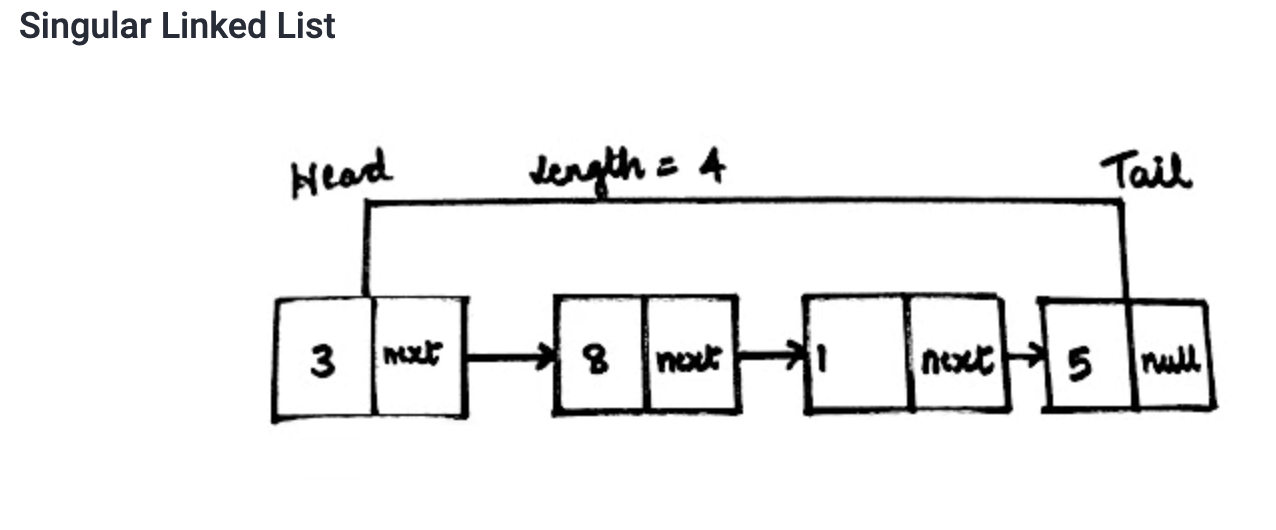 Singular Linked List
Head length = 4 Tail
3 next 8 next 1 next 5 null